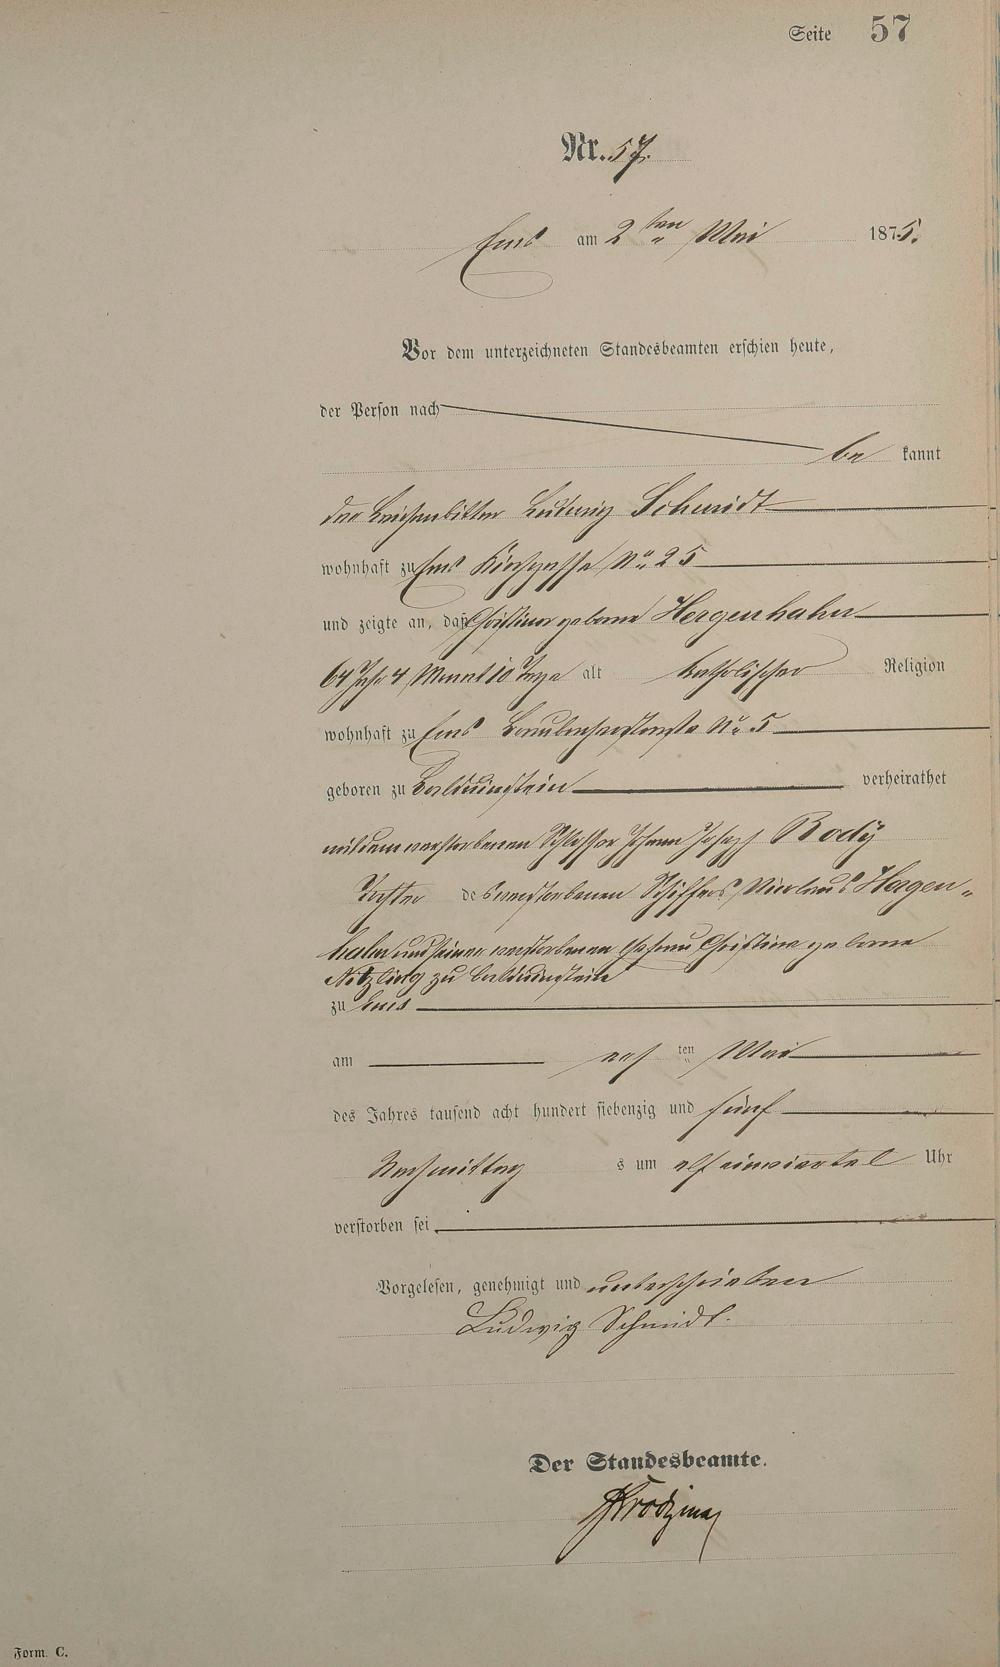 Seite 57
Nr. 57.
Ems am 2 ten Mai 1875.
Vor dem unterzeichneten Standesbeamten erschien heute,
der Person nach
be kannt
der Leichenbitter Ludwig Schmidt
wohnhaft zu Ems Kirchgasse No. 25
und zeigte an, daß Christina geborne Hergenhahn
64 Jahr 4 Monat 10 Tage alt katholischer Religion
wohnhaft zu Ems No. 5
geboren zu Balduinstein verheirathet
mit dem verstorbenen Schlosser Johann Joseph Body
Tochter des verstorbenen Schiffers Nicolaus Hergen-
hahn und seiner verstorbenen Ehefrau Christina geborne
zu Balduinstein
zu Ems
am ten Mai
des Jahres tausend acht hundert siebenzig und fünf
Nachmittag s um elf einviertel Uhr
verstorben sei
Vorgelesen, genehmigt und unterschrieben
Ludwig Schmidt.
Der Standesbeamte.
Form. C.